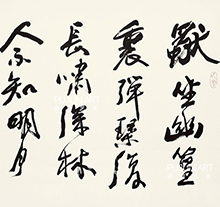 獨坐幽篁
裏彈琴復
長嘯深林
人不知明月